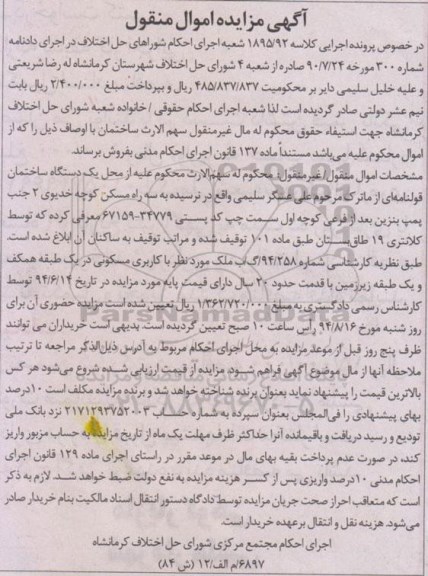 آگهی مزایده اموال منقول
در خصوص پرونده اجرایی کلاسه ۱۸۹۵/۹۲ شعبه اجرای احکام شوراهای حل اختلاف در اجرای دادنامه
شماره ۳۰۰ مورخه ۹۰/۷/۲۴ صادره از شعبه ۴ شورای حل اختلاف شهرستان کرمانشاه له رضا شریعتی
و علیه خلیل سلیمی دایر بر محکومیت ۴۸۵/۸۳۷/۸۳۷ ریال و بپرداخت مبلغ ۲/۴۰۰/۰۰۰ ریال بابت
نیم عشر دولتی صادر گردیده است لذا شعبه اجرای احکام حقوقی / خانواده شعبه شورای حل اختلاف
کرمانشاه جهت استیفاء حقوق محکوم له مال غیرمنقول سهم الارث ساختمان با اوصاف ذیل را که از
اموال محکوم علیه می‌باشد مستنداً ماده ۱۳۷ قانون اجرای احکام مدنی بفروش برساند.
مشخصات اموال منقول/غیرمنقول: محکوم له سهم‌الارث محکوم علیه از محل یک دستگاه ساختمان
قولنامه‌ای از ماترک مرحوم علی عسگر سلیمی واقع در نرسیده به سه راه مسکن کوچه خدیوی ۲ جنب
پمپ بنزین بعد از فرعی کوچه اول سمت چپ کد پستی ۳۴۷۷۹-۶۷۱۵۹ معرفی کرده که توسط
کلانتری ۱۹ طاق‌بستان طبق ماده ۱۰۱ توقیف شده و مراتب توقیف به ساکنان آن ابلاغ شده است.
طبق نظریه کارشناسی شماره ۹۴/۲۵۸/گ‌ب ملک مورد نظر با کاربری مسکونی در یک طبقه همکف
و یک طبقه زیرزمین با قدمت حدود ۲۰ سال دارای قیمت پایه مورد مزایده در تاریخ ۹۴/۶/۱۴ توسط
کارشناس رسمی دادگستری به مبلغ ۱/۳۶۲/۷۲۰/۰۰۰ ریال تعیین شده است مزایده حضوری آن برای
روز شنبه مورخ ۹۴/۸/۱۶ رأس ساعت ۱۰ صبح تعیین گردیده است. بدیهی است خریداران می توانند
ظرف پنج روز قبل از موعد مزایده به محل اجرای احکام مربوط به آدرس ذیل‌الذکر مراجعه تا ترتیب
ملاحظه آنها از مال موضوع آگهی فراهم شود. مزایده از قیمت ارزیابی شده شروع می‌شود هر کس
بالاترین قیمت را پیشنهاد نماید بعنوان برنده شناخته خواهد شد و برنده مزایده مکلف است ۱۰درصد
بهای پیشنهادی را فی‌المجلس بعنوان سپرده به شماره حساب ۲۱۷۱۲۹۳۷۵۲۰۰۳ نزد بانک ملی
تودیع و رسید دریافت و باقیمانده آنرا حداکثر ظرف مهلت یک ماه از تاریخ مزایده به حساب مزبور واریز
کند، در صورت عدم پرداخت بقیه بهای مال در موعد مقرر در راستای اجرای ماده ۱۲۹ قانون اجرای
احکام مدنی ۱۰درصد واریزی پس از کسر هزینه مزایده به نفع دولت ضبط خواهد شد. لازم به ذکر
است که متعاقب احراز صحت جریان مزایده توسط دادگاه دستور انتقال اسناد مالکیت بنام خریدار صادر
می‌شود. هزینه نقل و انتقال برعهده خریدار است.
اجرای احکام مجتمع مرکزی شورای حل اختلاف کرمانشاه
۶۸۹۷/م الف/۱۲ (ش ۸۴)
ParsNamadData